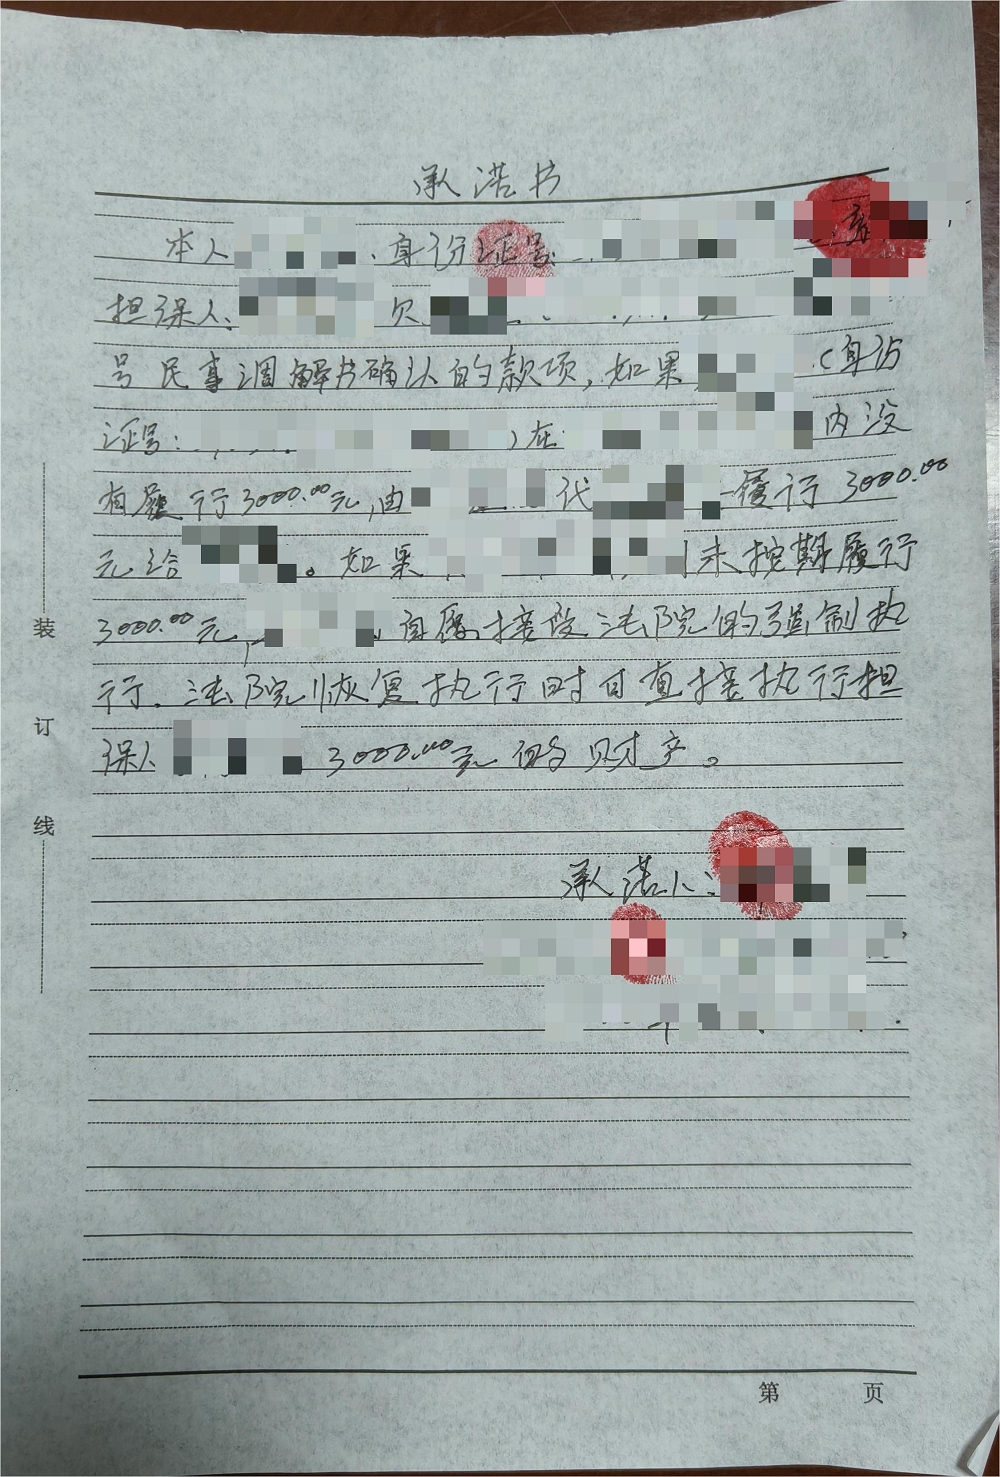 承诺书
本人 身份证号:
担保人 欠
号民事调解书确认的款项,如果 (身份
证号: )在 内没
有履行3000.00元,由 代 履行3000.00
元给 。如果 未按期履行
3000.00元, 自愿接受法院的强制执
行。法院恢复执行时可直接执行担
保人 3000.00元的财产。
承诺人:
年
装
订
线
第 页